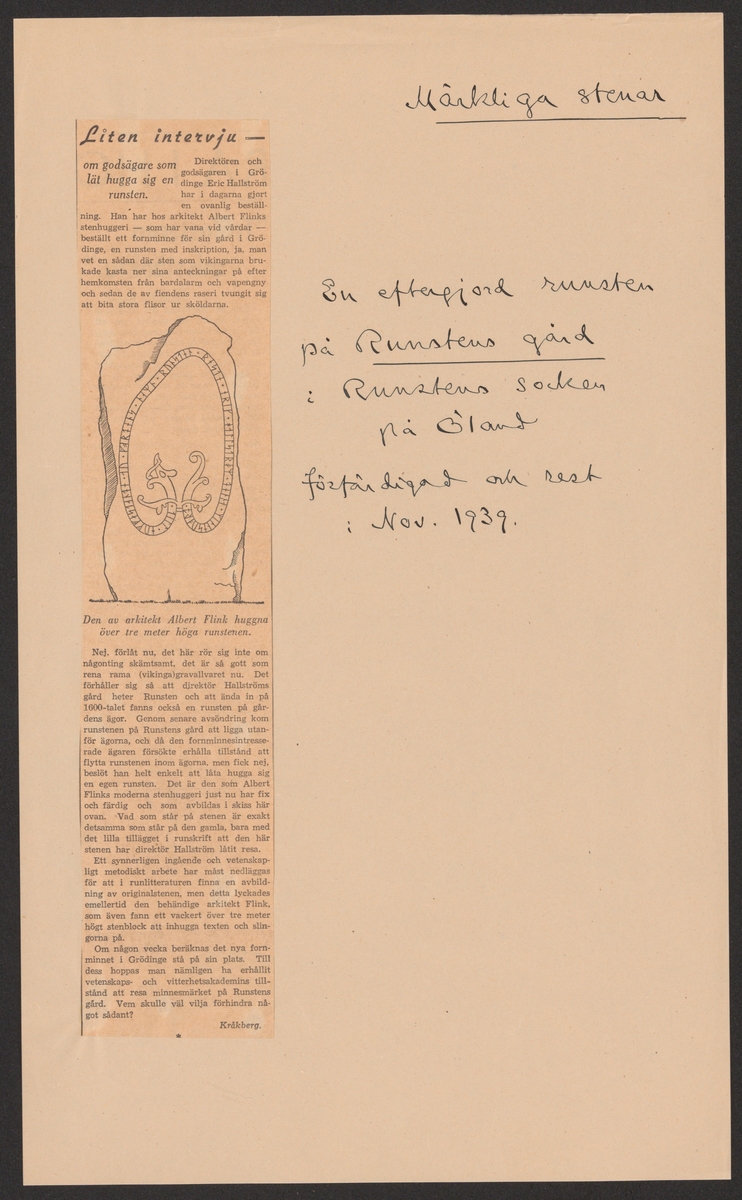 Märkliga stenar
Liten intervju —
om godsägare som
lät hugga sig en
runsten.
Direktören och
godsägaren i Grö-
dinge Eric Hallström
har i dagarna gjort
en ovanlig beställ-
ning. Han har hos arkitekt Albert Flinks
stenhuggeri — som har vana vid vårdar —
beställt ett fornminne för sin gård i Grö-
dinge, en runsten med inskription, ja, man
vet en sådan där sten som vikingarna bru-
kade kasta ner sina anteckningar på efter
hemkomsten från bardalarm och vapengny
och sedan de av fiendens raseri tvungit sig
att bita stora flisor ur sköldarna.
Den av arkitekt Albert Flink huggna
över tre meter höga runstenen.
Nej, förlåt nu, det här rör sig inte om
någonting skämtsamt, det är så gott som
rena rama (vikinga)gravallvaret nu. Det
förhåller sig så att direktör Hallströms
gård heter Runsten och att ända in på
1600-talet fanns också en runsten på går-
dens ägor. Genom senare avsöndring kom
runstenen på Runstens gård att ligga utan-
för ägorna, och då den fornminnesintresse-
rade ägaren försökte erhålla tillstånd att
flytta runstenen inom ägorna, men fick nej,
beslöt han helt enkelt att låta hugga sig
en egen runsten. Det är den som Albert
Flinks moderna stenhuggeri just nu har fix
och färdig och som avbildas i skiss här
ovan. Vad som står på stenen är exakt
detsamma som står på den gamla, bara med
det lilla tillägget i runskrift att den här
stenen har direktör Hallström låtit resa.
Ett synnerligen ingående och vetenskap-
ligt metodiskt arbete har måst nedläggas
för att i runlitteraturen finna en avbild-
ning av originalstenen, men detta lyckades
emellertid den behändige arkitekt Flink,
som även fann ett vackert över tre meter
högt stenblock att inhugga texten och slin-
gorna på.
Om någon vecka beräknas det nya forn-
minnet i Grödinge stå på sin plats. Till
dess hoppas man nämligen ha erhållit
vetenskaps- och vitterhetsakademins till-
stånd att resa minnesmärket på Runstens
gård. Vem skulle väl vilja förhindra nå-
got sådant?
Kråkberg.
*
En eftergjord runsten
på Runstens gård
i Runstens socken
på Öland
förfärdigad och rest
i Nov. 1939.